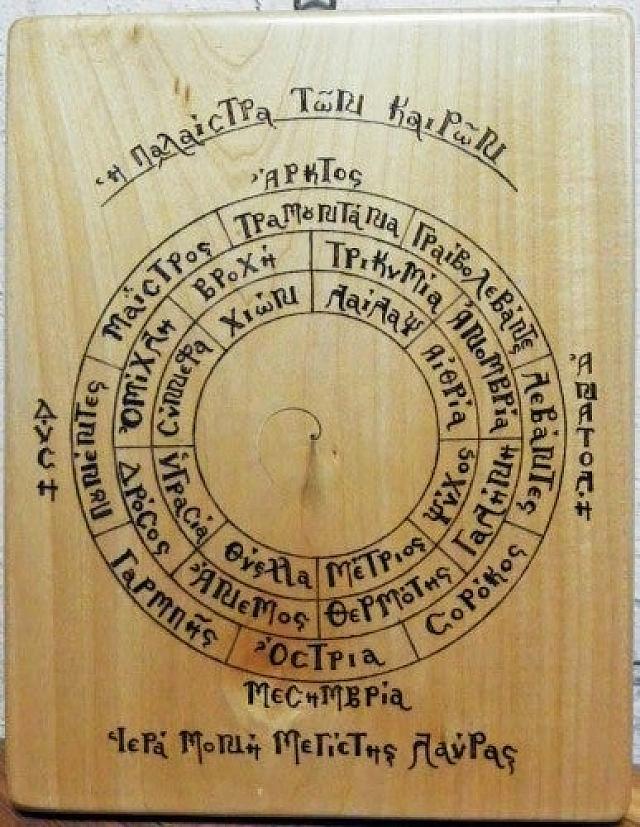 Ἡ Παλαίστρα Τῶν Καιρῶν
Ἄρκτος
Τραμȣντάνα
Γραίβο Λεβάντε
Λεβάντες
Σορόκος
Ὄστρια
Γαρμπῆς
Πȣνέντες
Μαΐστρος
Τρικυμία
Ἀνομβρία
Γαλήνη
Θερμότης
Ἄνεμος
Δρόσος
Ὁμίχλη
Βροχή
Λαίλαψ
Αἰθρία
Ψύχος
Μέτριος
Θύελλα
Ὑγρασία
Σύννεφα
Χιών
Ἀνατολή
Δύση
Μεσημβρία
Ἱερά Μονή Μεγίστης Λαύρας